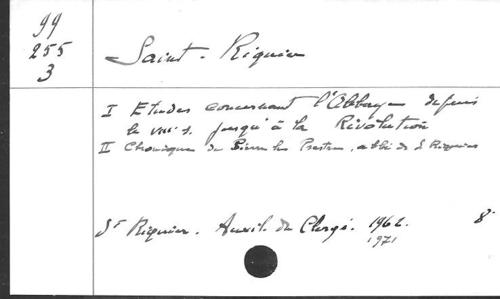 99
255
3
Saint-Riquier
I Etudes concernant l'Abbaye depuis
le VIIIe s. jusqu'à la Révolution
II Chronique de Pierre le Prestre, abbé de S. Riquier
St Riquier. Auxil. du Clergé. 1962. 8°
1971